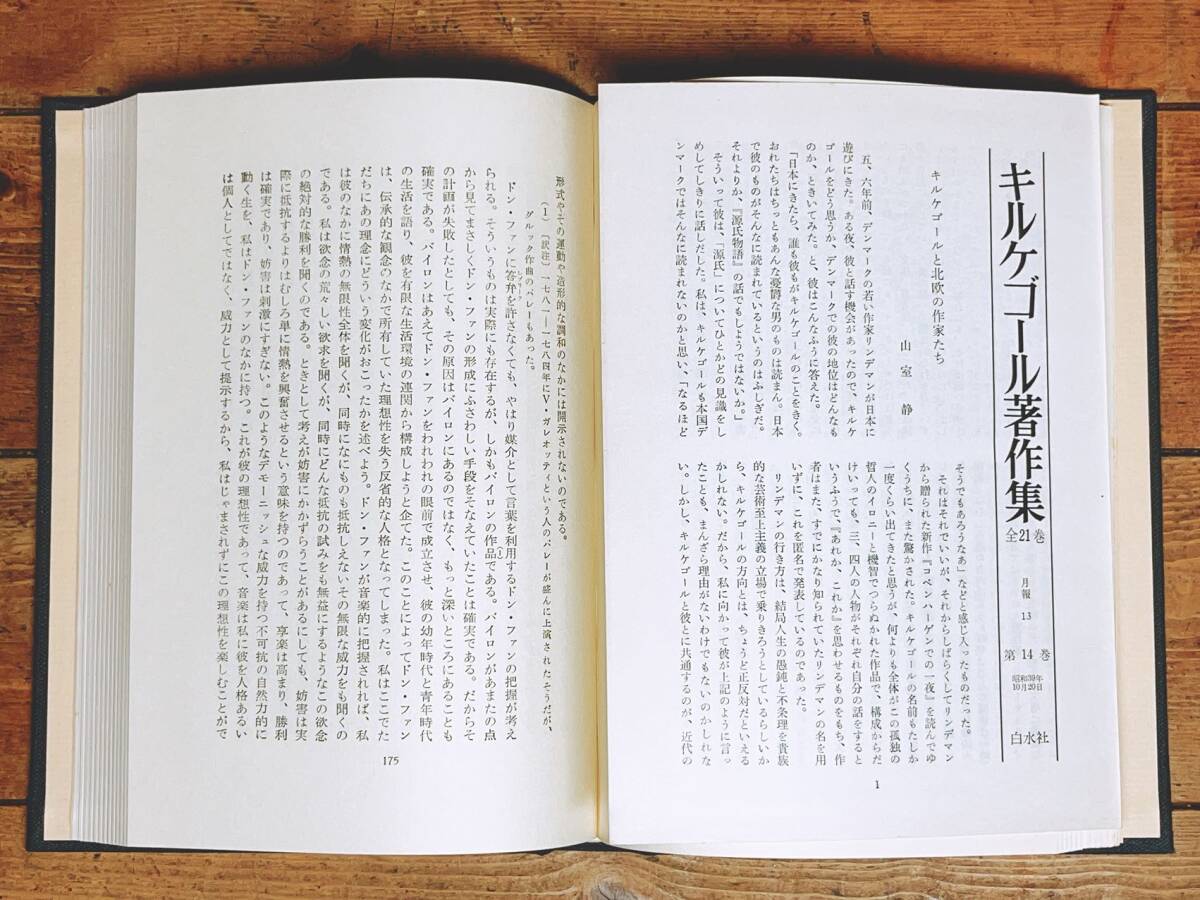 キルケゴール著作集
全21巻
月報
13
第14巻
昭和39年
10月20日
白水社
キルケゴールと北欧の作家たち
山室 静
五、六年前、デンマークの若い作家リンデマンが日本に
遊びにきた。ある夜、彼と話す機会があったので、キルケ
ゴールをどう思うか、デンマークでの彼の地位はどんなも
のか、ときいてみた。と、彼はこんなふうに答えた。
「日本にきたら、誰も彼もがキルケゴールのことをきく。
おれたちはちっともあんな憂鬱な男のものは読まん。日本
で彼のものがそんなに読まれているというのはふしぎだ。
それよりか、『源氏物語』の話でもしようではないか。」
そういって彼は、「源氏」についてひとかどの見識をし
めしてしきりに話しだした。私は、キルケゴールも本国デ
ンマークではそんなに読まれないのかと思い、「なるほど
そうでもあろうなあ」などと感じ入ったものだった。
それはそれでいいが、それからしばらくしてリンデマン
から贈られた新作『コペンハーゲンでの一夜』を読んでゆ
くうちに、また驚かされた。キルケゴールの名前もたしか
一度くらい出てきたと思うが、何よりも全体がこの孤独の
哲人のイロニーと機智でつらぬかれた作品で、構成からだ
けいっても、三、四人の人物がそれぞれ自分の話をすると
いうふうで、『あれか、これか』を思わせるものをもち、作
者はまた、すでにかなり知られていたリンデマンの名を用
いずに、これを匿名で発表しているのであった。
リンデマンの行き方は、結局人生の愚鈍と不条理を貴族
的な芸術至上主義の立場で乗りきろうとしているらしいか
ら、キルケゴールの方向とは、ちょうど正反対だといえる
かもしれない。だから、私に向かって彼が上記のように言っ
たことも、まんざら理由がないわけでもないのかしれな
い。しかし、キルケゴールと彼とに共通するのが、近代の
1
形式やその運動や造形的な調和のなかには開示されないのである。
(1)〔訳注〕一七八一―一七八四年にV・ガレオッティという人のバレーが盛んに上演されたそうだが、
グルック作曲のバレーもあった。
ドン・ファンに答弁を許さなくても、やはり媒介として言葉を利用するドン・ファンの把握が考え
られる。そういうものは実際にも存在するが、しかもバイロンの作品(1)である。バイロンがあまたの点
から見てまさしくドン・ファンの形成にふさわしい手段をそなえていたことは確実である。だからそ
の計画が失敗したとしても、その原因はバイロンにあるのではなく、もっと深いところにあることも
確実である。バイロンはあえてドン・ファンをわれわれの眼前で成立させ、彼の幼年時代と青年時代
の生活を語り、彼を有限な生活環境の連関から構成しようと企てた。このことによってドン・ファン
は、伝承的な観念のなかで所有していた理想性を失う反省的な人格となってしまった。私はここでた
だちにあの理念にどういう変化がおこったかを述べよう。ドン・ファンが音楽的に把握されれば、私
は彼のなかに情熱の無限性全体を聞くが、同時になにものも抵抗しえないその無限な威力をも聞くの
である。私は欲念の荒々しい欲求を聞くが、同時にどんな抵抗の試みをも無益にするようなこの欲念
の絶対的な勝利を聞くのである。ときとして考えが妨害にかかずらうことがあるにしても、妨害は実
際に抵抗するよりはむしろ単に情熱を興奮させるという意味を持つのであって、享楽は高まり、勝利
は確実であり、妨害は刺激にすぎない。このようなデモーニッシュな威力を持つ不可抗の自然力的に
動く生を、私はドン・ファンのなかに持つ。これが彼の理想性であって、音楽は私に彼を人格あるい
は個人としてではなく、威力として提示するから、私はじゃまされずにこの理想性を楽しむことがで
175